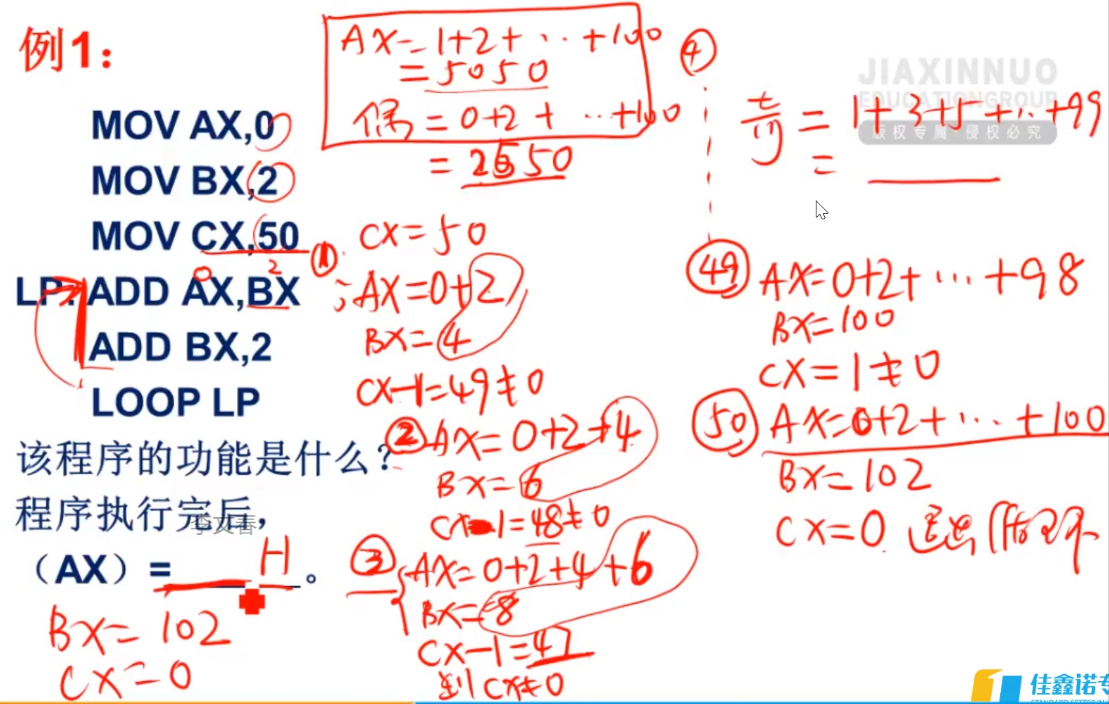 例1：
MOV AX,0
MOV BX,2
MOV CX,50
LP: ADD AX,BX
ADD BX,2
LOOP LP
该程序的功能是什么？
程序执行完后，
（AX）=　　H　。
BX=102
CX=0
AX=1+2+…+100
=5050
偶=0+2+…+100
=2550
0 2
① CX=50
;AX=0+2
BX=4
CX-1=49≠0
②AX=0+2+4
BX=6
CX-1=48≠0
③AX=0+2+4+6
BX=8
CX-1=47
到CX=0
④
奇=1+3+5+…+99
=
㊾ AX=0+2+…+98
BX=100
CX=1≠0
㊿ AX=0+2+…+100
BX=102
CX=0 退出循环
JIAXINNUO
EDUCATIONGROUP
版权专属 侵权必究
佳鑫诺专